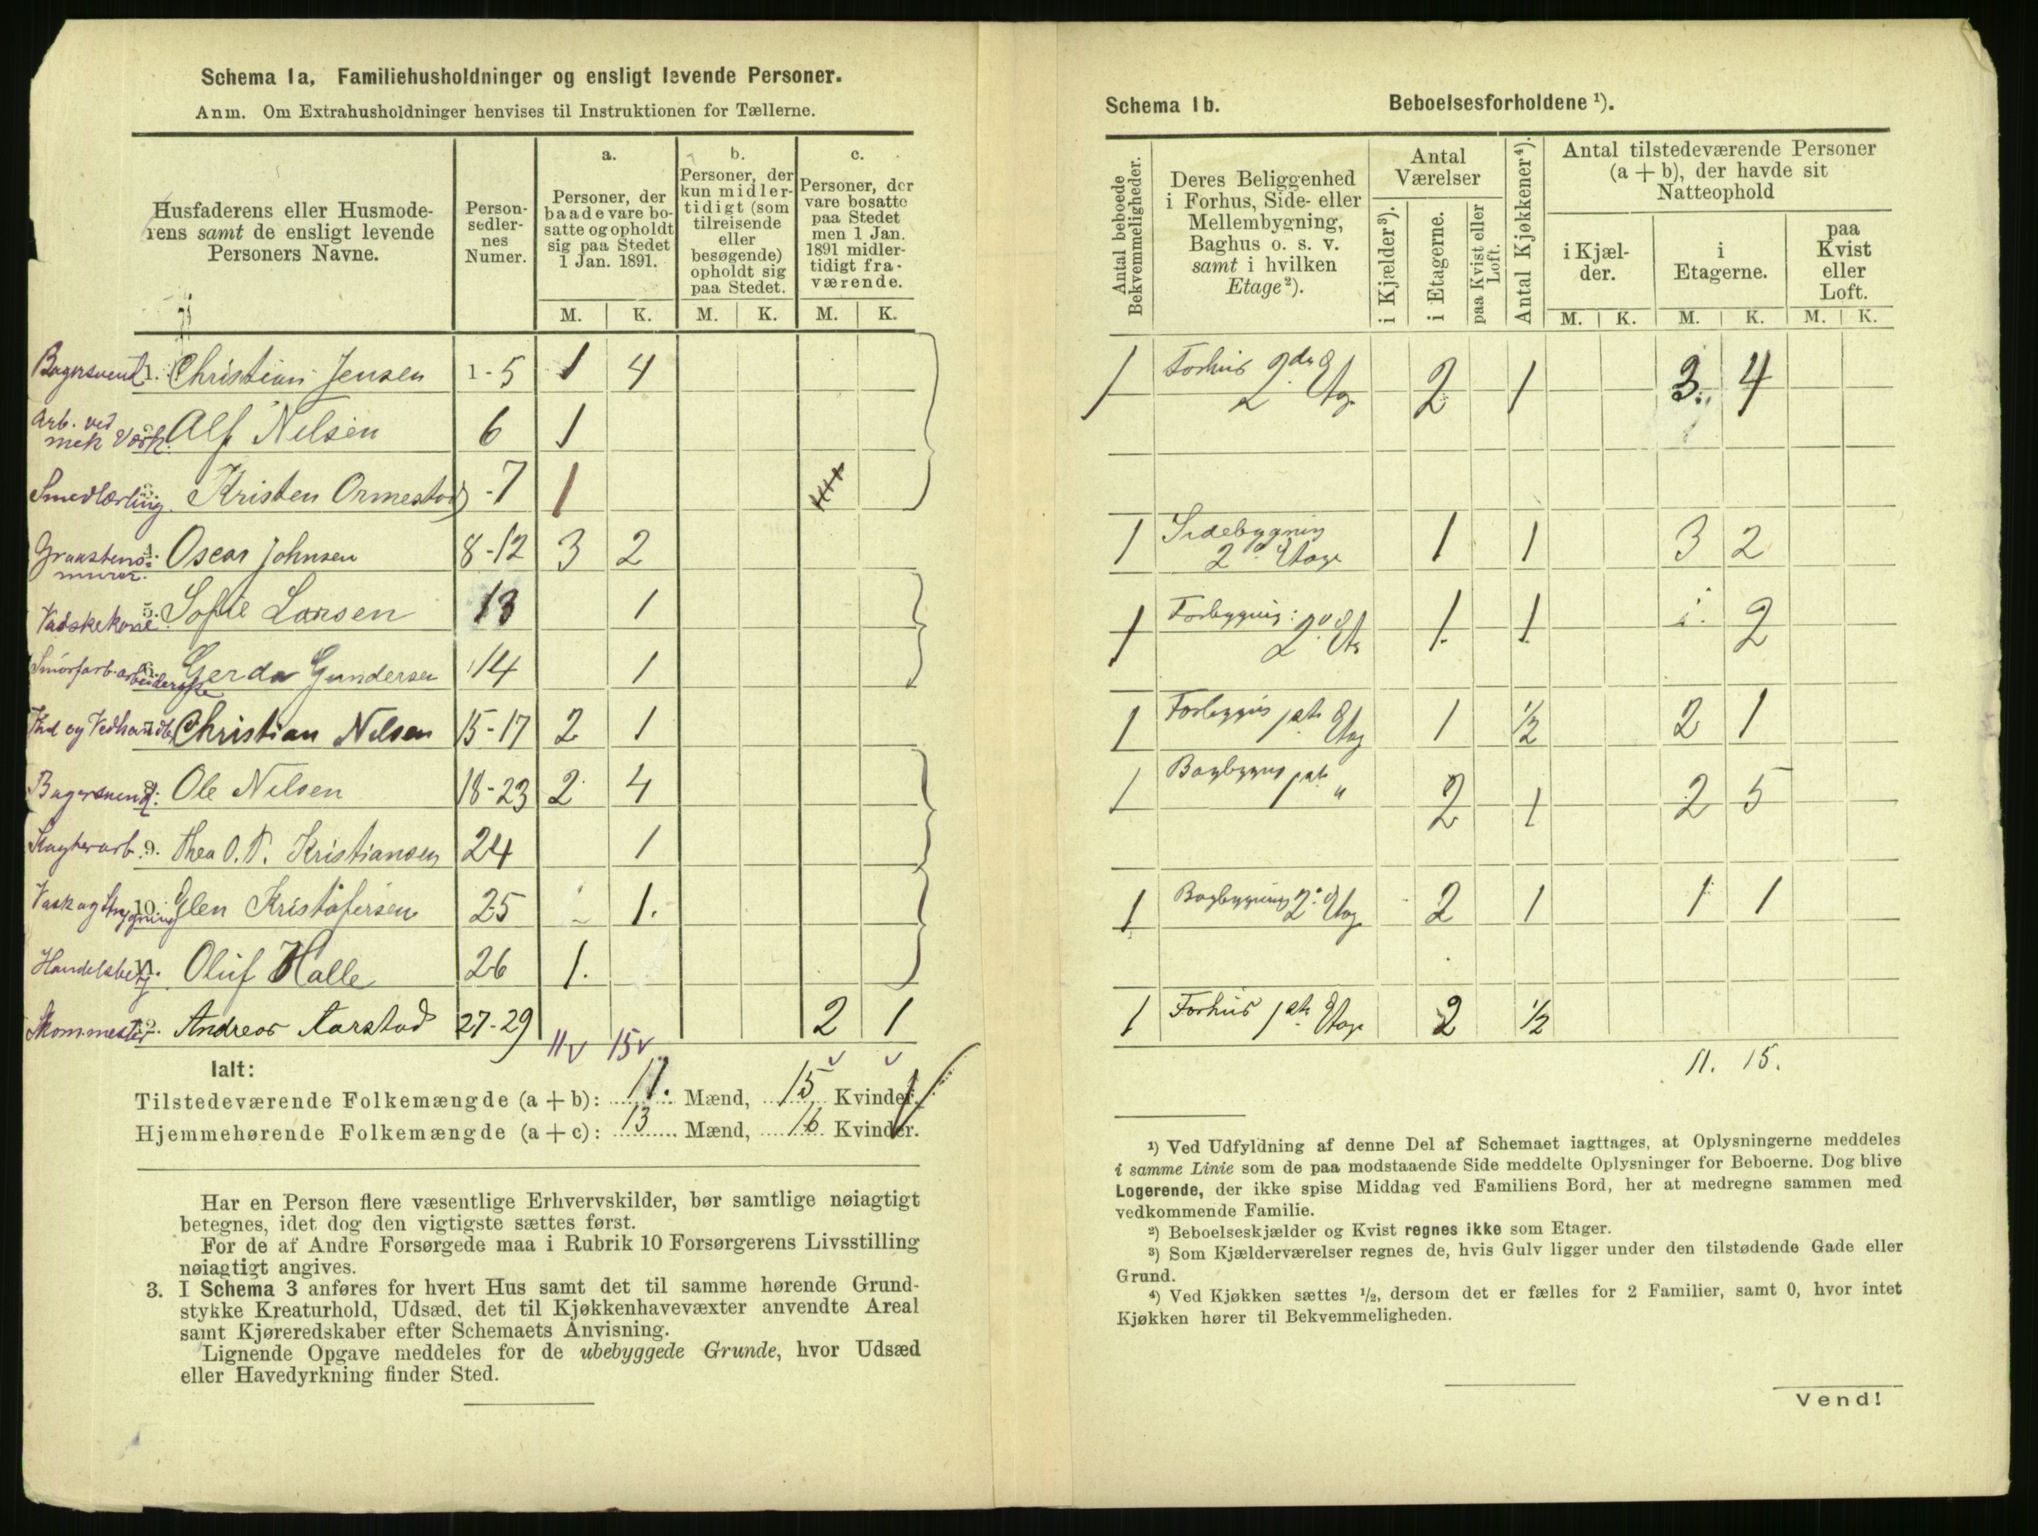 Schema 1a, Familiehusholdninger og ensligt levende Personer.
Anm. Om Extrahusholdninger henvises til Instruktionen for Tællerne.
Husfaderens eller Husmoderens samt de ensligt levende Personers Navne.
Person-sedler-nes Numer.
a. Personer, der baade vare bosatte og opholdt sig paa Stedet 1 Jan. 1891.
b. Personer, der kun midlertidigt (som tilreisende eller besøgende) opholdt sig paa Stedet.
c. Personer, der vare bosatte paa Stedet men 1 Jan. 1891 midlertidigt fraværende.
M. K. M. K. M. K.
Bagersvend 1. Christian Jensen 1-5 1 4
Arb. ved mek Værk. Alf Nilsen 6 1
Smedlærling Kristen Ormestad -7 1
Graastensmurer. 4. Oscar Johnsen 8-12 3 2
Vaskekone 5. Sofie Larsen 13 1
Smörfarb. arbeiderske Gerda Gundersen 14 1
Ved og Vedhandler Christian Nilsen 15-17 2 1
Bagersvend. Ole Nilsen 18-23 2 4
9. Thea O. T. Kristiansen 24 1
Vask og Strygning 10. Elen Kristofersen 25 1.
Handelsbetj. Oluf Halle 26 1.
Skommester 12. Andreas Aarstad 27-29 2 1
11 v 15 v
Ialt:
Tilstedeværende Folkemængde (a + b): 11. Mænd, 15 Kvinder.
Hjemmehørende Folkemængde (a + c): 13 Mænd, 16 Kvinder.
Har en Person flere væsentlige Erhvervskilder, bør samtlige nøiagtigt
betegnes, idet dog den vigtigste sættes først.
For de af Andre Forsørgede maa i Rubrik 10 Forsørgerens Livsstilling
nøiagtigt angives.
3. I Schema 3 anføres for hvert Hus samt det til samme hørende Grund-
stykke Kreaturhold, Udsæd, det til Kjøkkenhavevæxter anvendte Areal
samt Kjøreredskaber efter Schemaets Anvisning.
Lignende Opgave meddeles for de ubebyggede Grunde, hvor Udsæd
eller Havedyrkning finder Sted.
Schema 1b. Beboelsesforholdene ¹).
Antal beboede Bekvemmeligheder.
Deres Beliggenhed i Forhus, Side- eller Mellembygning, Baghus o. s. v. samt i hvilken Etage ²).
Antal Værelser
i Kjælder ³).
i Etagerne.
paa Kvist eller Loft.
Antal Kjøkkener ⁴).
Antal tilstedeværende Personer (a + b), der havde sit Natteophold
i Kjælder.
i Etagerne.
paa Kvist eller Loft.
M. K. M. K. M. K.
1 Forhus 2den Etag 2 1 3. 4
2 Etag
1 Sidebygning 2d. Etage 1 1 3 2
1 Forbygnig: 2d. Et 1. 1 2
1 Forbyggnis 1ste Etag 1 ½ 2 1
1 Bagbyggnis 1ste " 2 1 2 5
1 Bagbygning 2. Etag 2 1 1 1
1 Forhus 1ste Etage 2 ½
11. 15.
¹) Ved Udfyldning af denne Del af Schemaet iagttages, at Oplysningerne meddeles
i samme Linie som de paa modstaaende Side meddelte Oplysninger for Beboerne. Dog blive
Logerende, der ikke spise Middag ved Familiens Bord, her at medregne sammen med
vedkommende Familie.
²) Beboelseskjælder og Kvist regnes ikke som Etager.
³) Som Kjælderværelser regnes de, hvis Gulv ligger under den tilstødende Gade eller
Grund.
⁴) Ved Kjøkken sættes ½, dersom det er fælles for 2 Familier, samt 0, hvor intet
Kjøkken hører til Bekvemmeligheden.
Vend!